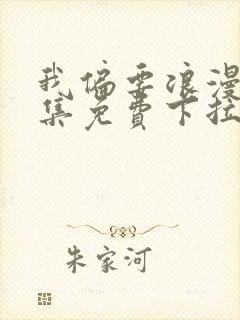 我偏要浪漫
集免費下拉
朱家河